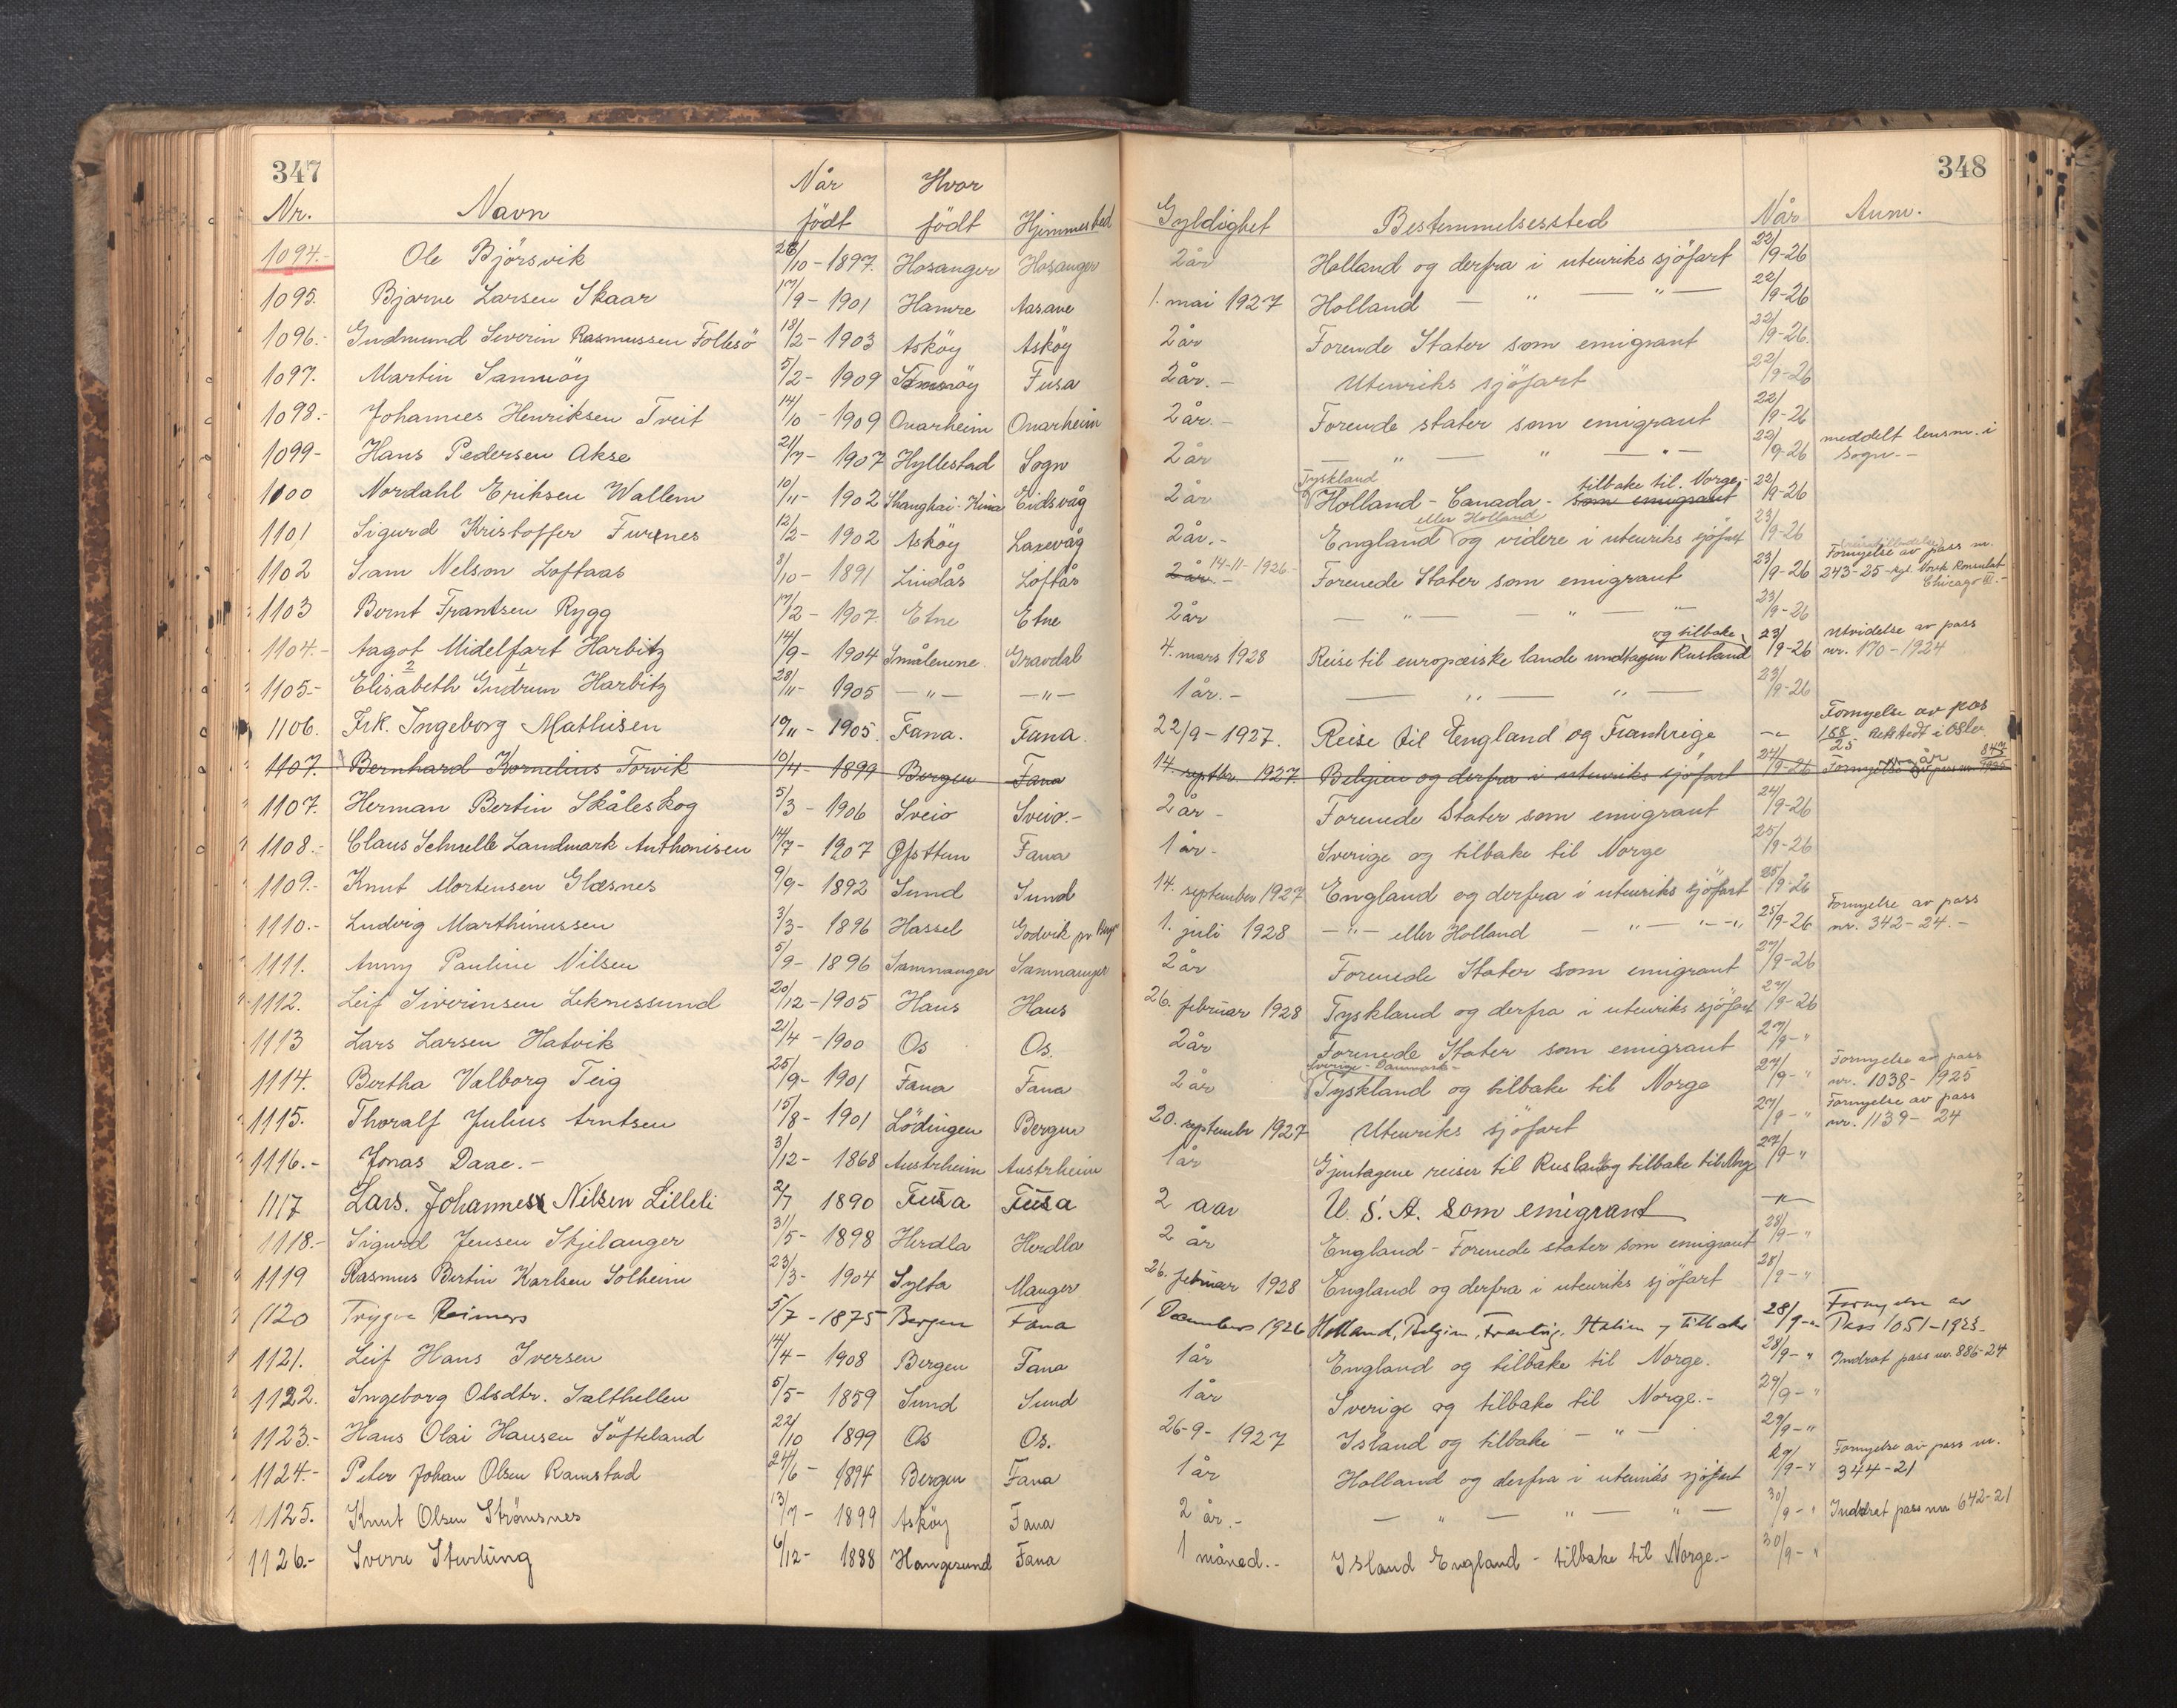 347
348
Nr. Navn Når födt Hvor födt Hjemmested Gyldighet Bestemmelsessted Når Anm.
1094.- Ole Bjørsvik 26/10-1897. Hosanger Hosanger 2 år Holland og derfra i utenriks sjöfart 22/9-26
1095. Bjarne Larsen Skaar 17/9-1901 Hamre Aasane 1. mai 1927 Holland — " — " — 22/9-26
1096.- Gudmund Severin Rasmussen Follesö 18/2-1903 Asköy Asköy 2 år Forende Stater som emigrant 22/9-26.
1097. Martin Samnöy 5/2-1909 Samnöy Fusa 2 år.- Utenriks sjöfart 22/9-26
1098.- Johannes Henriksen Tveit 14/10-1909 Onarheim Onarheim 2 år.- Forende stater som emigrant 22/9-26
1099- Hans Pedersen Akse 21/7-1907 Hyllestad Sogn 2 år — " — " — " — 22/9-26 meddelt lensm. i Sogn.-
1100 Nordahl Eriksen Wallem 10/11-1902 Shanghai-Kina Eidsvåg 2 år Tyskland Holland - Canada - som emigrant tilbake til Norge.- 22/9-26
1101 Sigurd Kristoffer Furnes 12/2-1902 Asköy Laxevåg 2 år.- England eller Holland og videre i utenriks sjöfart 23/9-26
1102 Sam Nelson Loftaas 8/10-1891 Lindås Loftås 2 år.- 14-11-1926- Forenede Stater som emigrant 23/9-26 Fornyelse av pass nr. 243-25- kgl. Norsk Konsulat Chicago Ill.-
1103 Bernt Frantsen Rygg 17/12-1907 Etne Etne 2 år — " — " — " 23/9-26
1104.- Aagot Midelfart Harbitz 14/9-1904 Smålenene. Gravdal 4. mars 1928 Reise til europæiske lande undtagen Rusland og tilbake 23/9-26 Utvidelse av pass nr. 170-1924
1105.- Elisabeth 2 Gudrun 1 Harbitz 28/11-1905 —"— —"— 1 år.- — " — " — 23/9-26
1106. Frk. Ingeborg Mathisen 19/11-1905. Fana. Fana. 22/9-1927. Reise til England og Frankrige -"- Fornyelse av pas 158/25 i Oslo.
1107. Bernhard Kornelius Torvik 10/4-1899 Bergen Fana 14. septbr. 1927. Belgien og derfra i utenriks sjöfart 24/9-26 Fornyelse av pass nr 847/1925
1107. Herman Bertin Skåleskog 5/3-1906 Sveio Sveio.- 2 år- Forenede Stater som emigrant 24/9-26
1108.- Claus Schnelle Landmark Anthonisen 14/7-1907 Øfsttun Fana 1 år- Sverige og tilbake til Norge 25/9-26
1109.- Knut Mortensen Glæsnes 9/9-1892 Sund Sund 14. september 1927 England og derfra i utenriks sjöfart 25/9-26
1110.- Ludvig Marthinussen 3/3-1896 Hassel Godvik pr Berg. 1. juli 1928 —"— eller Holland — " — "-" 25/9-26 Fornyelse av pass nr. 342-24.-
1111. Anny Pauline Nilsen 5/9-1896 Samnanger Samnanger 2 år Forenede Stater som emigrant 27/9-26
1112. Leif Siverinsen Leknessund 20/12-1905 Haus Haus 26. februar 1928 Tyskland og derfra i utenriks sjöfart 27/9-26
1113 Lars Larsen Hatvik 21/4-1900 Os Os. 2 år Forenede Stater som emigrant 27/9-"
1114. Bertha Valborg Teig 25/9-1901 Fana Fana 2 år Sverige-Danmark- Tyskland og tilbake til Norge 27/9-" Fornyelse av pass nr. 1038-1925
1115. Thoralf Julius Arntsen 15/8-1901 Lödingen Bergen 20. septembr 1927 Utenriks sjöfart 27/9-" Fornyelse av pass nr. 1139-24
1116.- Jonas Daae.- 3/12-1868 Austrheim Austrheim 1 år Gjentagene reiser til Rusland og tilbake til Norge 27/9-"
1117 Lars. Johannes Nilsen Lilleli 2/7 1890 Fusa Fusa 2 aar U. S. A. som emigrant —"—
1118.- Sigurd Jensen Skjelanger 31/5-1898 Herdla Herdla 2 år England - Forenede stater som emigrant 28/9-"
1119 Rasmus Bertin Karlsen Solheim 23/3-1904 Sylta Manger 26. februar 1928 England og derfra i utenriks sjöfart 28/9-"
1120 Trygve Reimers 5/7-1875 Bergen Fana 1 December 1926 Holland, Belgien, Frankrig, Italien og tilbake 28/9-" Fornyelse av Pass 1051-1923-
1121. Leif Hans Iversen 14/4-1908 Bergen Fana 1 år England og tilbake til Norge. 28/9-" Inndrat pass nr. 886-24
1122. Ingeborg Olsdtr. Salthellen 5/5-1859 Sund Sund 1 år Sverige og tilbake til Norge.- 29/9-"
1123.- Hans Olai Hansen Söfteland 22/10 1899 Os Os. 26-9-1927 Island og tilbake — " — 29/9-"
1124.- Peter Johan Olsen Ramstad 24/6-1894 Bergen Fana 1 år Holland og derfra i utenriks sjöfart 29/9-" Fornyelse av pass nr. 344-21
1125. Knut Olsen Strømsnes 13/7-1899 Asköy Fana 2 år.- — " — " — " — 30/9-" Inddret pass nr 642-21
1126.- Sverre Sturlung 6/12-1888 Haugesund Fana 1 måned.- Island England - tilbake til Norge.- 30/9-"